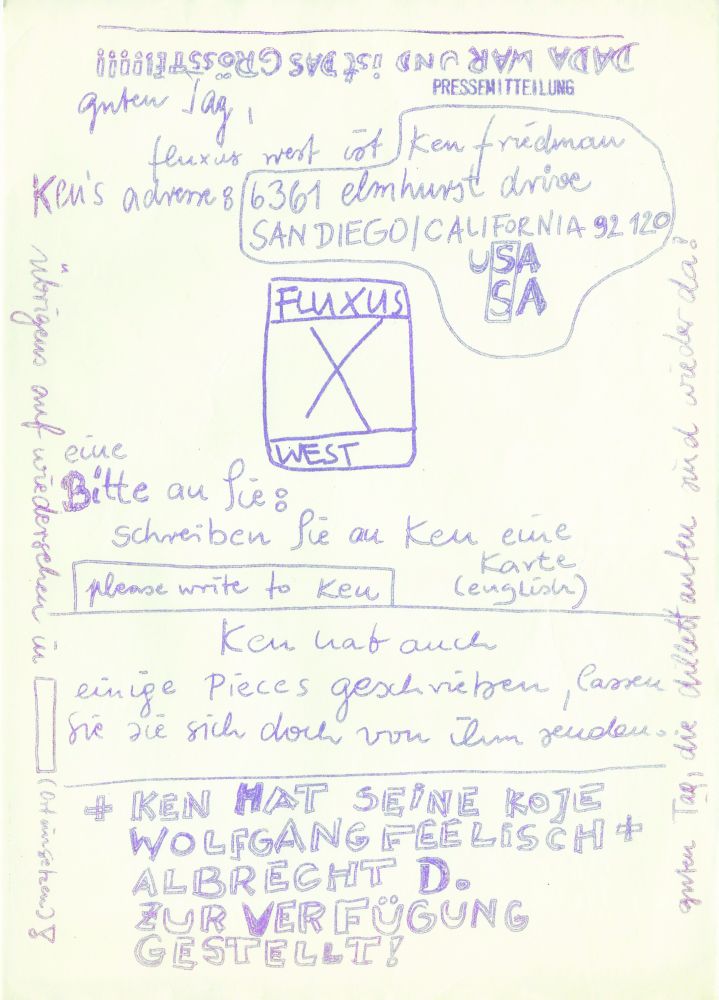 DADA WAR UND ist DAS GRÖSSTE!!!!!!
PRESSEMITTEILUNG
guten Tag,
fluxus west ist Ken friedman
Ken's adresse: 6361 elmhurst drive
SAN DIEGO/CALIFORNIA 92 120
USA
SA
FLUXUS
X
WEST
eine
Bitte an Sie:
schreiben Sie an Ken eine
Karte
please write to Ken (english)
Ken hat auch
einige Pieces geschrieben, lassen
Sie sie sich doch von ihm senden.
+ KEN HAT SEINE KOJE
WOLFGANG FEELISCH +
ALBRECHT D.
ZUR VERFÜGUNG
GESTELLT!
übrigens auf wiedersehen in (Ort einsetzen)!
guten Tag, die dilettanten sind wieder da!